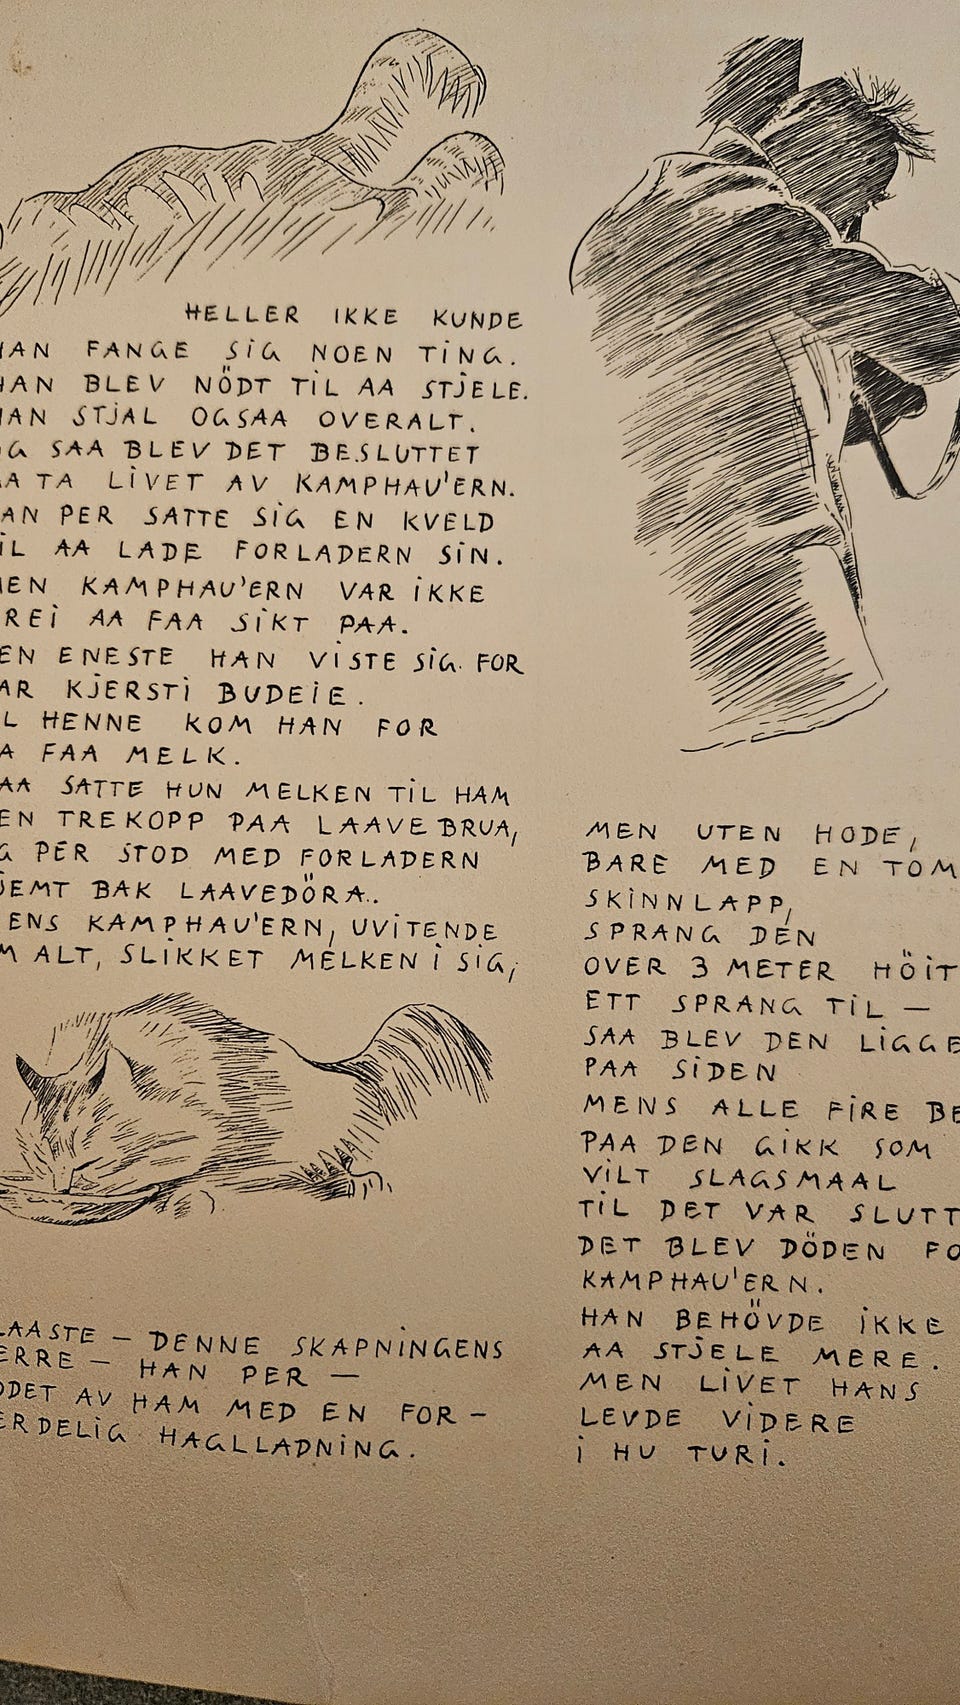 HELLER IKKE KUNDE
FANGE SIG NOEN TING.
BLEV NÖDT TIL AA STJELE.
STJAL OGSAA OVERALT.
SAA BLEV DET BESLUTTET
TA LIVET AV KAMPHAU'ERN.
PER SATTE SIG EN KVELD
AA LADE FORLADERN SIN.
KAMPHAU'ERN VAR IKKE
AA FAA SIKT PAA.
ENESTE HAN VISTE SIG FOR
KJERSTI BUDEIE.
HENNE KOM HAN FOR
FAA MELK.
SATTE HUN MELKEN TIL HAM
TREKOPP PAA LAAVEBRUA,
PER STOD MED FORLADERN
BAK LAAVEDÖRA.
KAMPHAU'ERN, UVITENDE
ALT, SLIKKET MELKEN I SIG,
— DENNE SKAPNINGENS
— HAN PER —
AV HAM MED EN FOR-
HAGLLADNING.
MEN UTEN HODE,
BARE MED EN
SKINNLAPP,
SPRANG DEN
OVER 3 METER HÖIT
ETT SPRANG TIL —
SAA BLEV DEN
PAA SIDEN
MENS ALLE FIRE
PAA DEN GIKK SOM
VILT SLAGSMAAL
TIL DET VAR
DET BLEV DÖDEN
KAMPHAU'ERN.
HAN BEHÖVDE IKKE
AA STJELE MERE.
MEN LIVET HANS
LEVDE VIDERE
I HU TURI.